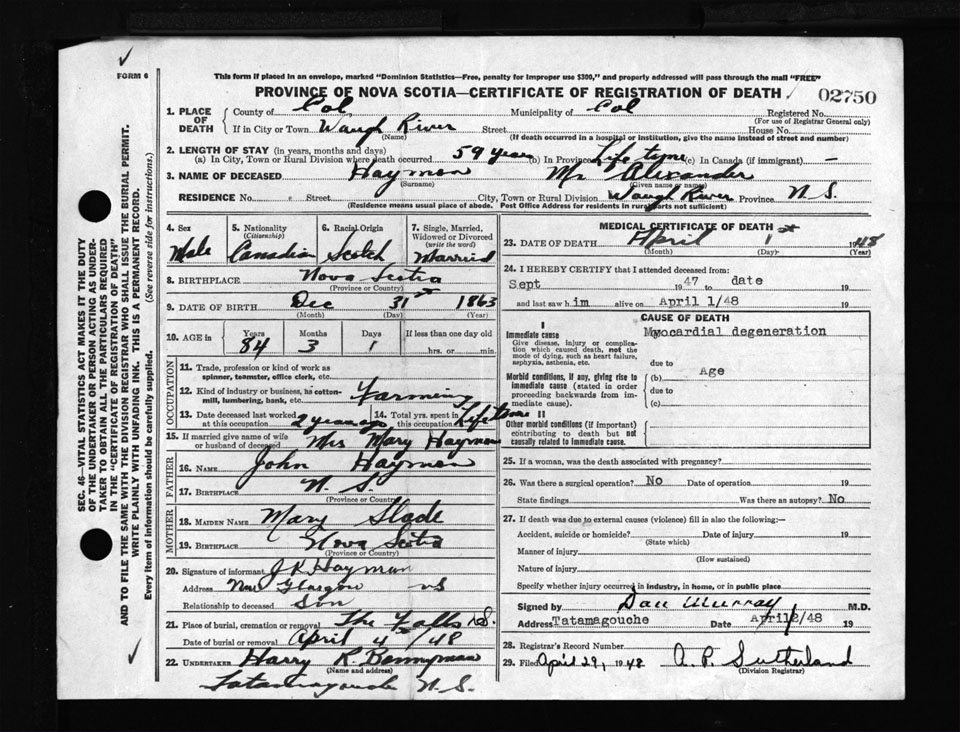 FORM 6
This form if placed in an envelope, marked "Dominion Statistics—Free, penalty for improper use $300," and properly addressed will pass through the mail "FREE"
PROVINCE OF NOVA SCOTIA—CERTIFICATE OF REGISTRATION OF DEATH 02750
SEC. 46—VITAL STATISTICS ACT MAKES IT THE DUTY
OF THE UNDERTAKER OR PERSON ACTING AS UNDER-
TAKER TO OBTAIN ALL THE PARTICULARS REQUIRED
IN THE "CERTIFICATE OF REGISTRATION OF DEATH"
AND TO FILE THE SAME WITH THE DIVISION REGISTRAR WHO SHALL ISSUE THE BURIAL PERMIT.
WRITE PLAINLY WITH UNFADING INK. THIS IS A PERMANENT RECORD.
Every item of information should be carefully supplied. (See reverse side for instructions.)
1. PLACE OF DEATH County of Col Municipality of Col Registered No.
(For use of Registrar General only)
If in City or Town Waugh River Street House No.
(Name) (If death occurred in a hospital or institution, give the name instead of street and number)
2. LENGTH OF STAY (in years, months and days)
(a) In City, Town or Rural Division where death occurred 59 years (b) In Province Life tyme (c) In Canada (if immigrant) —
3. NAME OF DECEASED Hayman Mr Alexander
(Surname) (Given name or names)
RESIDENCE No. Street City, Town or Rural Division Waugh River Province N.S.
(Residence means usual place of abode. Post Office Address for residents in rural parts not sufficient)
4. Sex Male
5. Nationality (Citizenship) Canadian
6. Racial Origin Scotch
7. Single, Married, Widowed or Divorced (write the word) Married
8. BIRTHPLACE Nova Scotia
(Province or Country)
9. DATE OF BIRTH Dec 31st 1863
(Month) (Day) (Year)
10. AGE in Years 84 Months 3 Days 1 If less than one day old hrs. or min.
OCCUPATION
11. Trade, profession or kind of work as
spinner, teamster, office clerk, etc.
12. Kind of industry or business, as cotton-
mill, lumbering, bank, etc. Farming
13. Date deceased last worked at this occupation 2 years ago 14. Total yrs. spent in this occupation Life time
15. If married give name of wife or husband of deceased Mrs Mary Hayman
FATHER
16. NAME John Hayman
17. BIRTHPLACE N.S.
(Province or Country)
MOTHER
18. MAIDEN NAME Mary Slade
19. BIRTHPLACE Nova Scotia
(Province or Country)
20. Signature of informant J K Hayman
Address New Glasgow NS
Relationship to deceased Son
21. Place of burial, cremation or removal The Falls N.S.
Date of burial or removal April 4th/48
22. UNDERTAKER Harry R. Bonnyman
(Name and address)
Tatamagouche N.S.
MEDICAL CERTIFICATE OF DEATH
23. DATE OF DEATH April 1st 1948
(Month) (Day) (Year)
24. I HEREBY CERTIFY that I attended deceased from:
Sept 1947 to date 19
and last saw him alive on April 1/48 19
CAUSE OF DEATH
I
Immediate cause Myocardial degeneration
Give disease, injury or complica-
tion which caused death, not the
mode of dying, such as heart failure,
asphyxia, asthenia, etc. due to
Morbid conditions, if any, giving rise to (b) Age
immediate cause (stated in order due to
proceeding backwards from im-
mediate cause). (c)
II
Other morbid conditions (if important)
contributing to death but not
causally related to immediate cause.
25. If a woman, was the death associated with pregnancy?
26. Was there a surgical operation? No Date of operation 19
State findings Was there an autopsy? No
27. If death was due to external causes (violence) fill in also the following:—
Accident, suicide or homicide? Date of injury 19
(State which)
Manner of injury
(How sustained)
Nature of injury
Specify whether injury occurred in industry, in home, or in public place
Signed by Dan Murray M.D.
Address Tatamagouche Date April 2/48 19
28. Registrar's Record Number
29. Filed April 29, 1948 A. P. Sutherland
(Division Registrar)